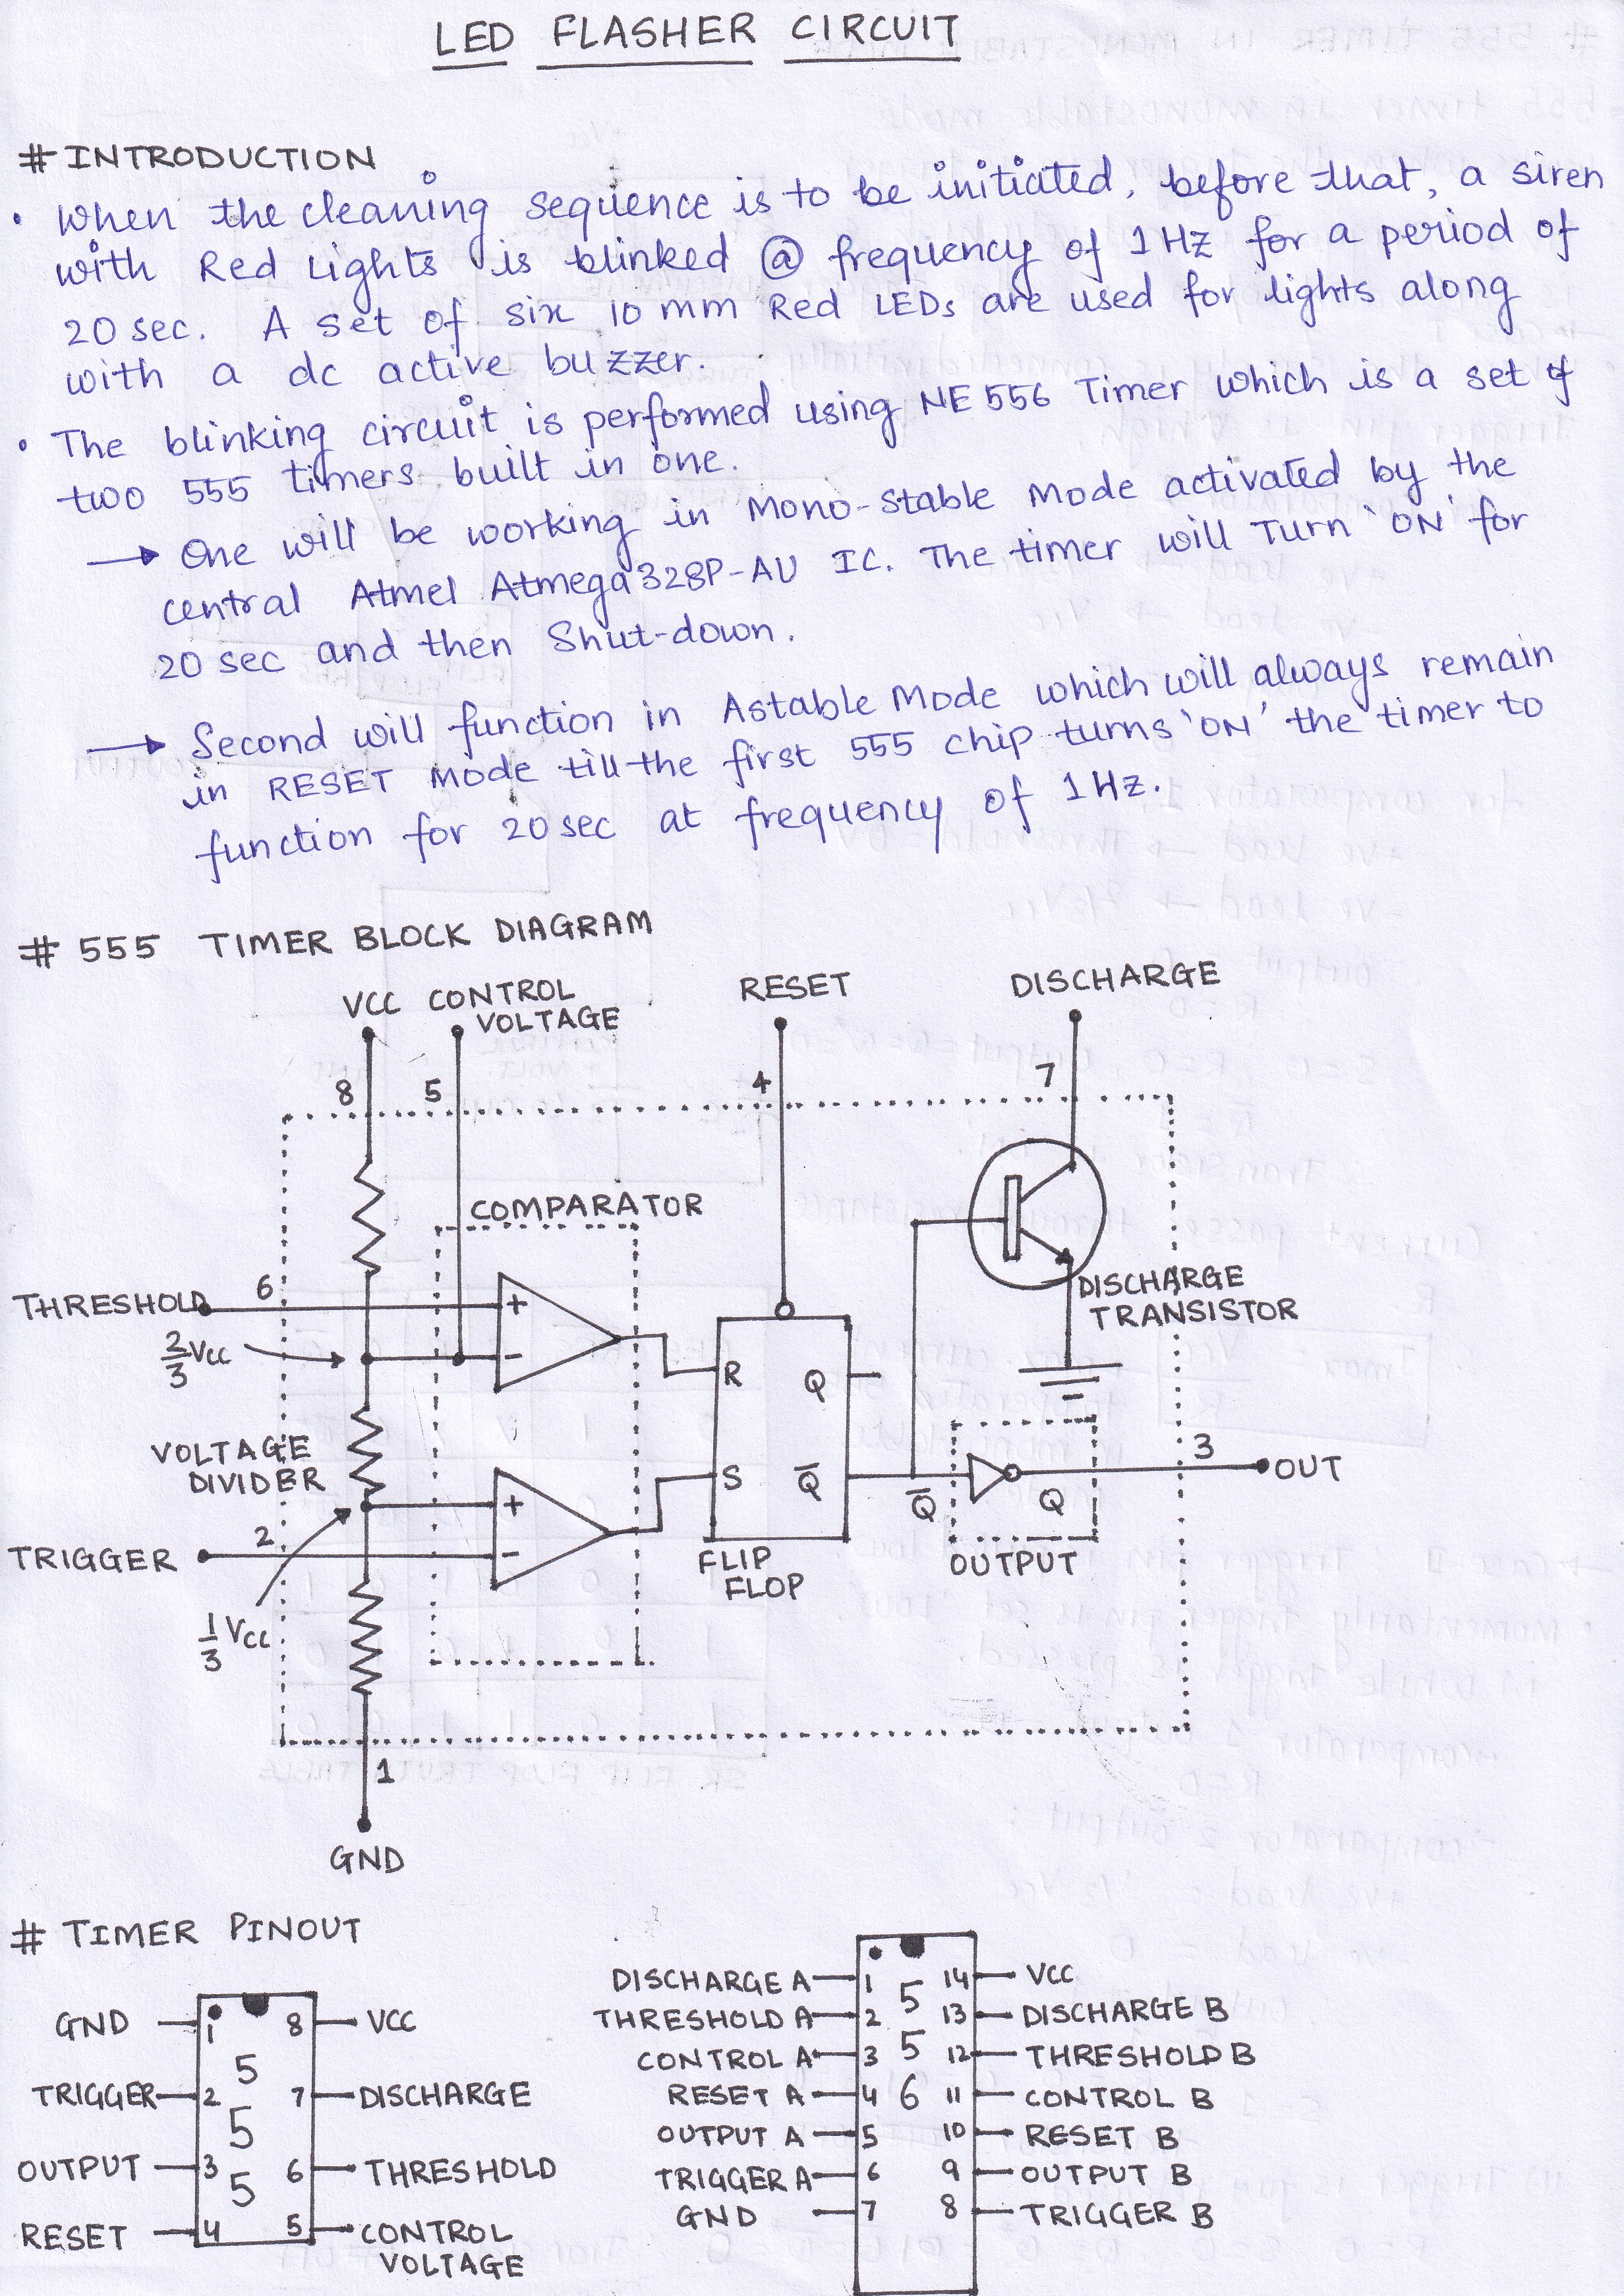 LED FLASHER CIRCUIT
# INTRODUCTION
• When the cleaning sequence is to be initiated, before that, a siren
with Red Lights is blinked @ frequency of 1 Hz for a period of
20 sec. A set of six 10 mm Red LEDs are used for lights along
with a dc active buzzer.
• The blinking circuit is performed using NE 556 Timer which is a set of
two 555 timers built in one.
→ One will be working in Mono-Stable Mode activated by the
central Atmel Atmega328P-AU IC. The timer will Turn 'ON' for
20 sec and then Shut-down.
→ Second will function in Astable Mode which will always remain
in RESET Mode till the first 555 chip turns 'ON' the timer to
function for 20 sec at frequency of 1 Hz.
# 555 TIMER BLOCK DIAGRAM
VCC CONTROL VOLTAGE RESET DISCHARGE
8 5 4 7
COMPARATOR
THRESHOLD 6 +
DISCHARGE
TRANSISTOR
2/3 Vcc -
R Q
VOLTAGE
DIVIDER
S Q̅ Q̅ Q 3 OUT
+
TRIGGER 2 -
FLIP
FLOP
OUTPUT
1/3 Vcc
1
GND
# TIMER PINOUT
GND 1 8 VCC
5
TRIGGER 2 7 DISCHARGE
5
OUTPUT 3 6 THRESHOLD
5
RESET 4 5 CONTROL
VOLTAGE
DISCHARGE A 1 14 VCC
5
THRESHOLD A 2 13 DISCHARGE B
CONTROL A 3 5 12 THRESHOLD B
RESET A 4 6 11 CONTROL B
OUTPUT A 5 10 RESET B
TRIGGER A 6 9 OUTPUT B
GND 7 8 TRIGGER B